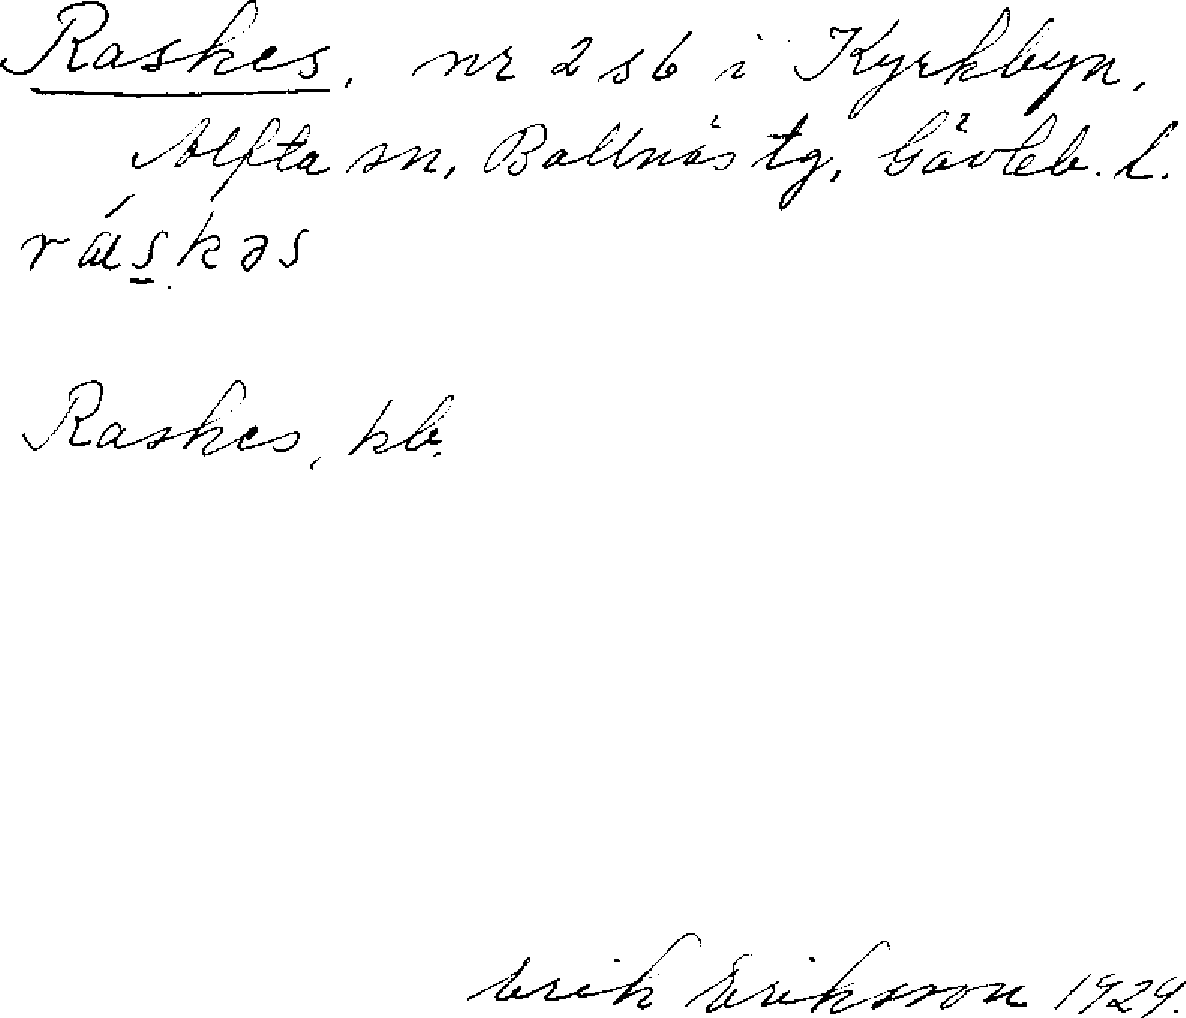 Raskes, nr 2 s6 i Kyrkbyn,
Alfta sn, Bollnäs tg, Gävleb. l.
ráskəs
Raskes, kb.
Erik Eriksson 1929.